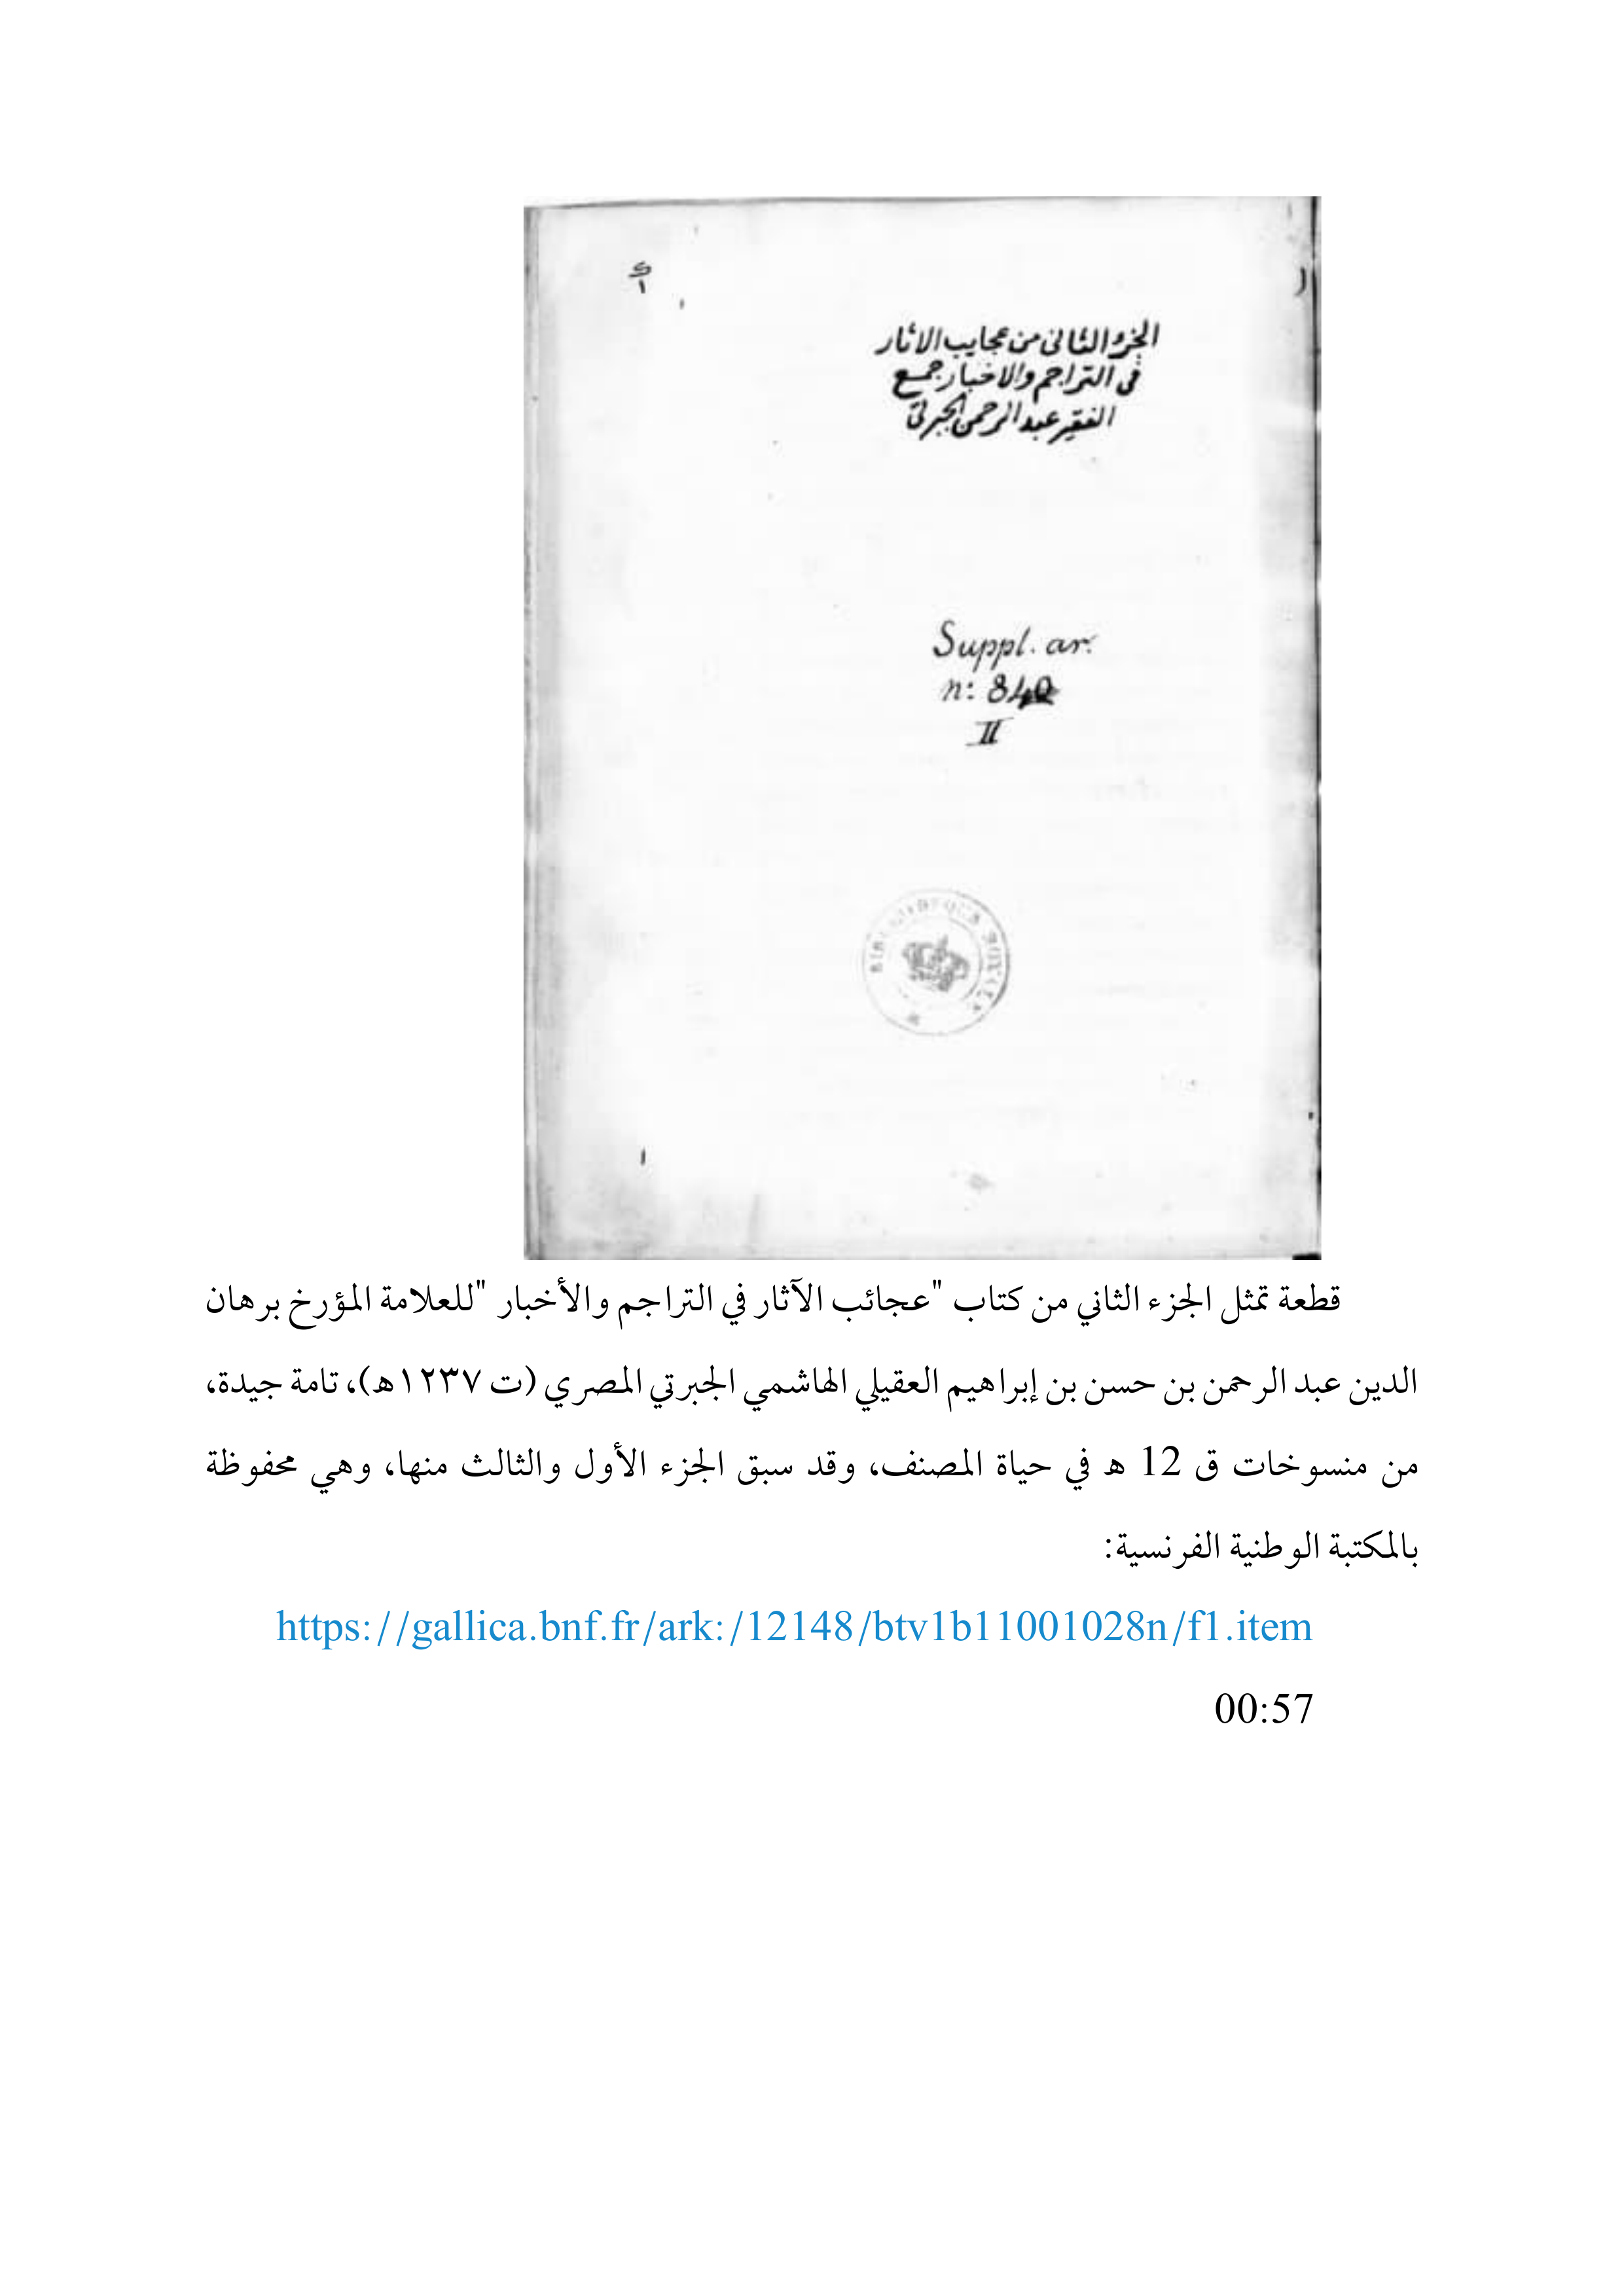 الجزء الثانى من عجايب الاثار
فى التراجم والاخبار جمع
الفقير عبد الرحمن الجبرتى
Suppl. ar.
n: 840
II
قطعة تمثل الجزء الثاني من كتاب "عجائب الآثار في التراجم والأخبار "للعلامة المؤرخ برهان
الدين عبد الرحمن بن حسن بن إبراهيم العقيلي الهاشمي الجبرتي المصري (ت ١٢٣٧هـ)، تامة جيدة،
من منسوخات ق 12 هـ في حياة المصنف، وقد سبق الجزء الأول والثالث منها، وهي محفوظة
بالمكتبة الوطنية الفرنسية:
https://gallica.bnf.fr/ark:/12148/btv1b11001028n/f1.item
00:57